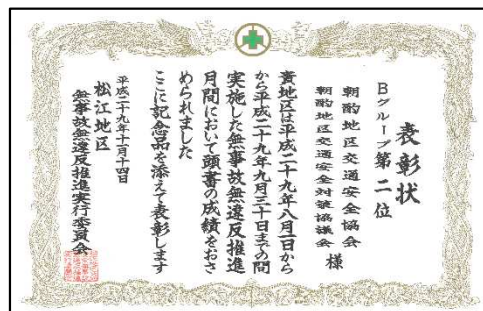 表彰状
Bグループ第二位
朝酌地区交通安全協会
朝酌地区交通安全対策協議会 様
貴地区は平成二十九年八月一日から
から平成二十九年九月三十日までの間
実施した無事故無違反推進
月間において頭書の成績をおさ
められました
ここに記念品を添えて表彰します
平成二十九年十月十四日
松江地区
無事故無違反推進実行委員会